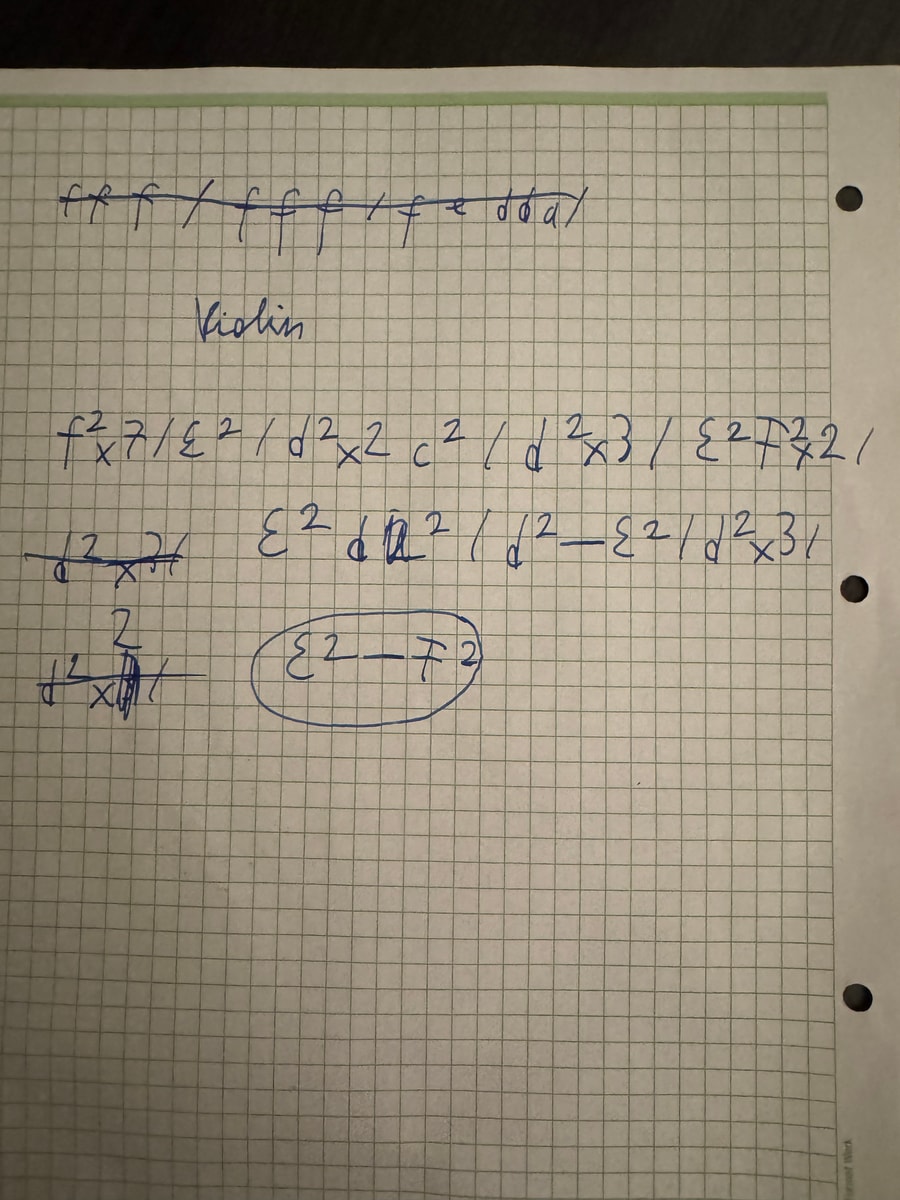 f f f / f f f / f e d d a /
Violin
f²x7/ε²/d²x2 c²/d²x3/ε²F²x2/
d²x3/ ε² d²/d²—ε²/d²x3/
2
d²x / ε²—F²